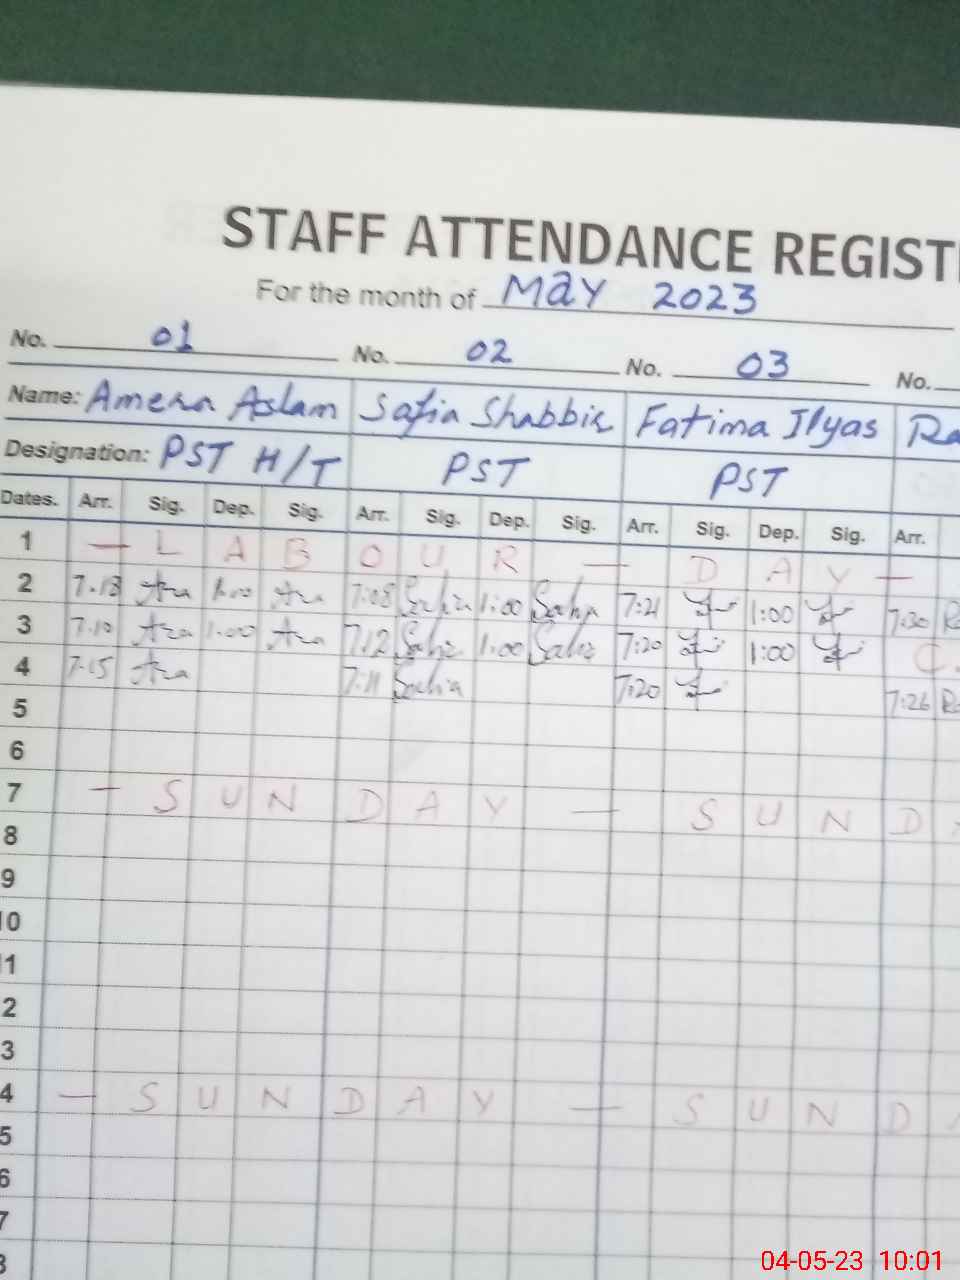 STAFF ATTENDANCE REGIST
For the month of May 2023
No. 01 No. 02 No. 03 No.
Name: Amena Aslam Safia Shabbir Fatima Ilyas Ra
Designation: PST H/T PST PST
Dates. Arr. Sig. Dep. Sig. Arr. Sig. Dep. Sig. Arr. Sig. Dep. Sig. Arr.
1 — L A B O U R — D A Y —
2 7.18 1.00 7:08 1:00 7:21 1:00 7:30 Ra
3 7.10 1.00 7:12 1:00 7:20 1:00 C.
4 7.15 7:11 7:20 7:26 Ra
5
6
7 — S U N D A Y — S U N D
8
9
10
11
2
3
4 — S U N D A Y — S U N D
5
6
7
8
04-05-23 10:01